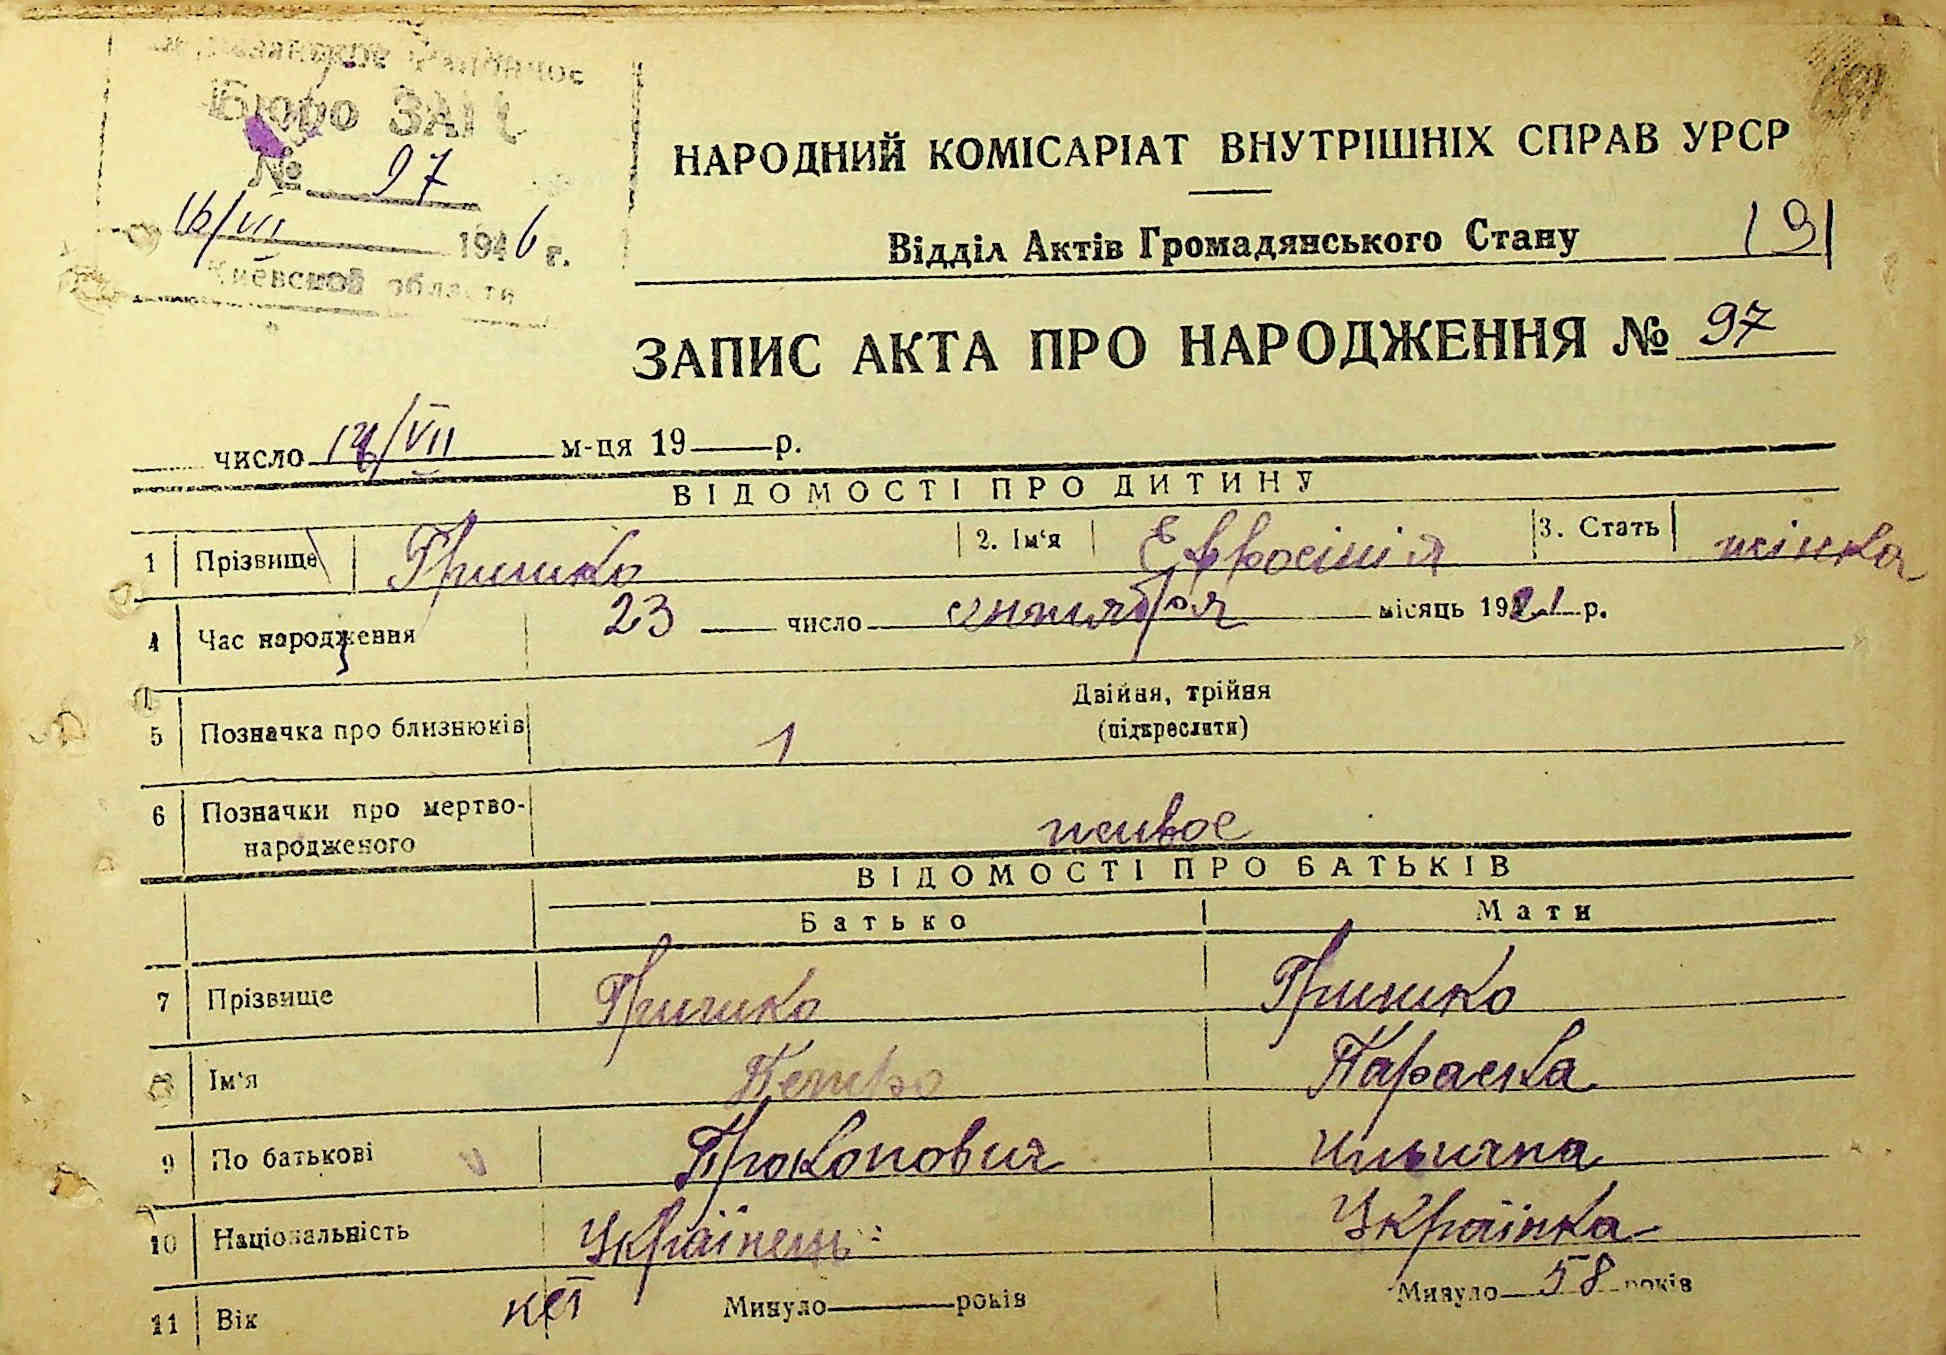 Бюро ЗАГС
№ 97
16/VII 1946 г.
Киевской области
НАРОДНИЙ КОМІСАРІАТ ВНУТРІШНІХ СПРАВ УРСР
Відділ Актів Громадянського Стану 191
ЗАПИС АКТА ПРО НАРОДЖЕННЯ № 97
число /VII м-ця 19 р.
ВІДОМОСТІ ПРО ДИТИНУ
1 Прізвище Гришко 2. Ім'я Евфросінія 3. Стать жінка
4 Час народження 23 число сентября місяць 1921 р.
5 Позначка про близнюків 1 Двійня, трійня
(підкреслити)
6 Позначки про мертво-
народженого живое
ВІДОМОСТІ ПРО БАТЬКІВ
Батько Мати
7 Прізвище Гришко Гришко
8 Ім'я Петро Параска
9 По батькові Прокопович Ильична
10 Національність Українець Українка
11 Вік Минуло років Минуло 58 років